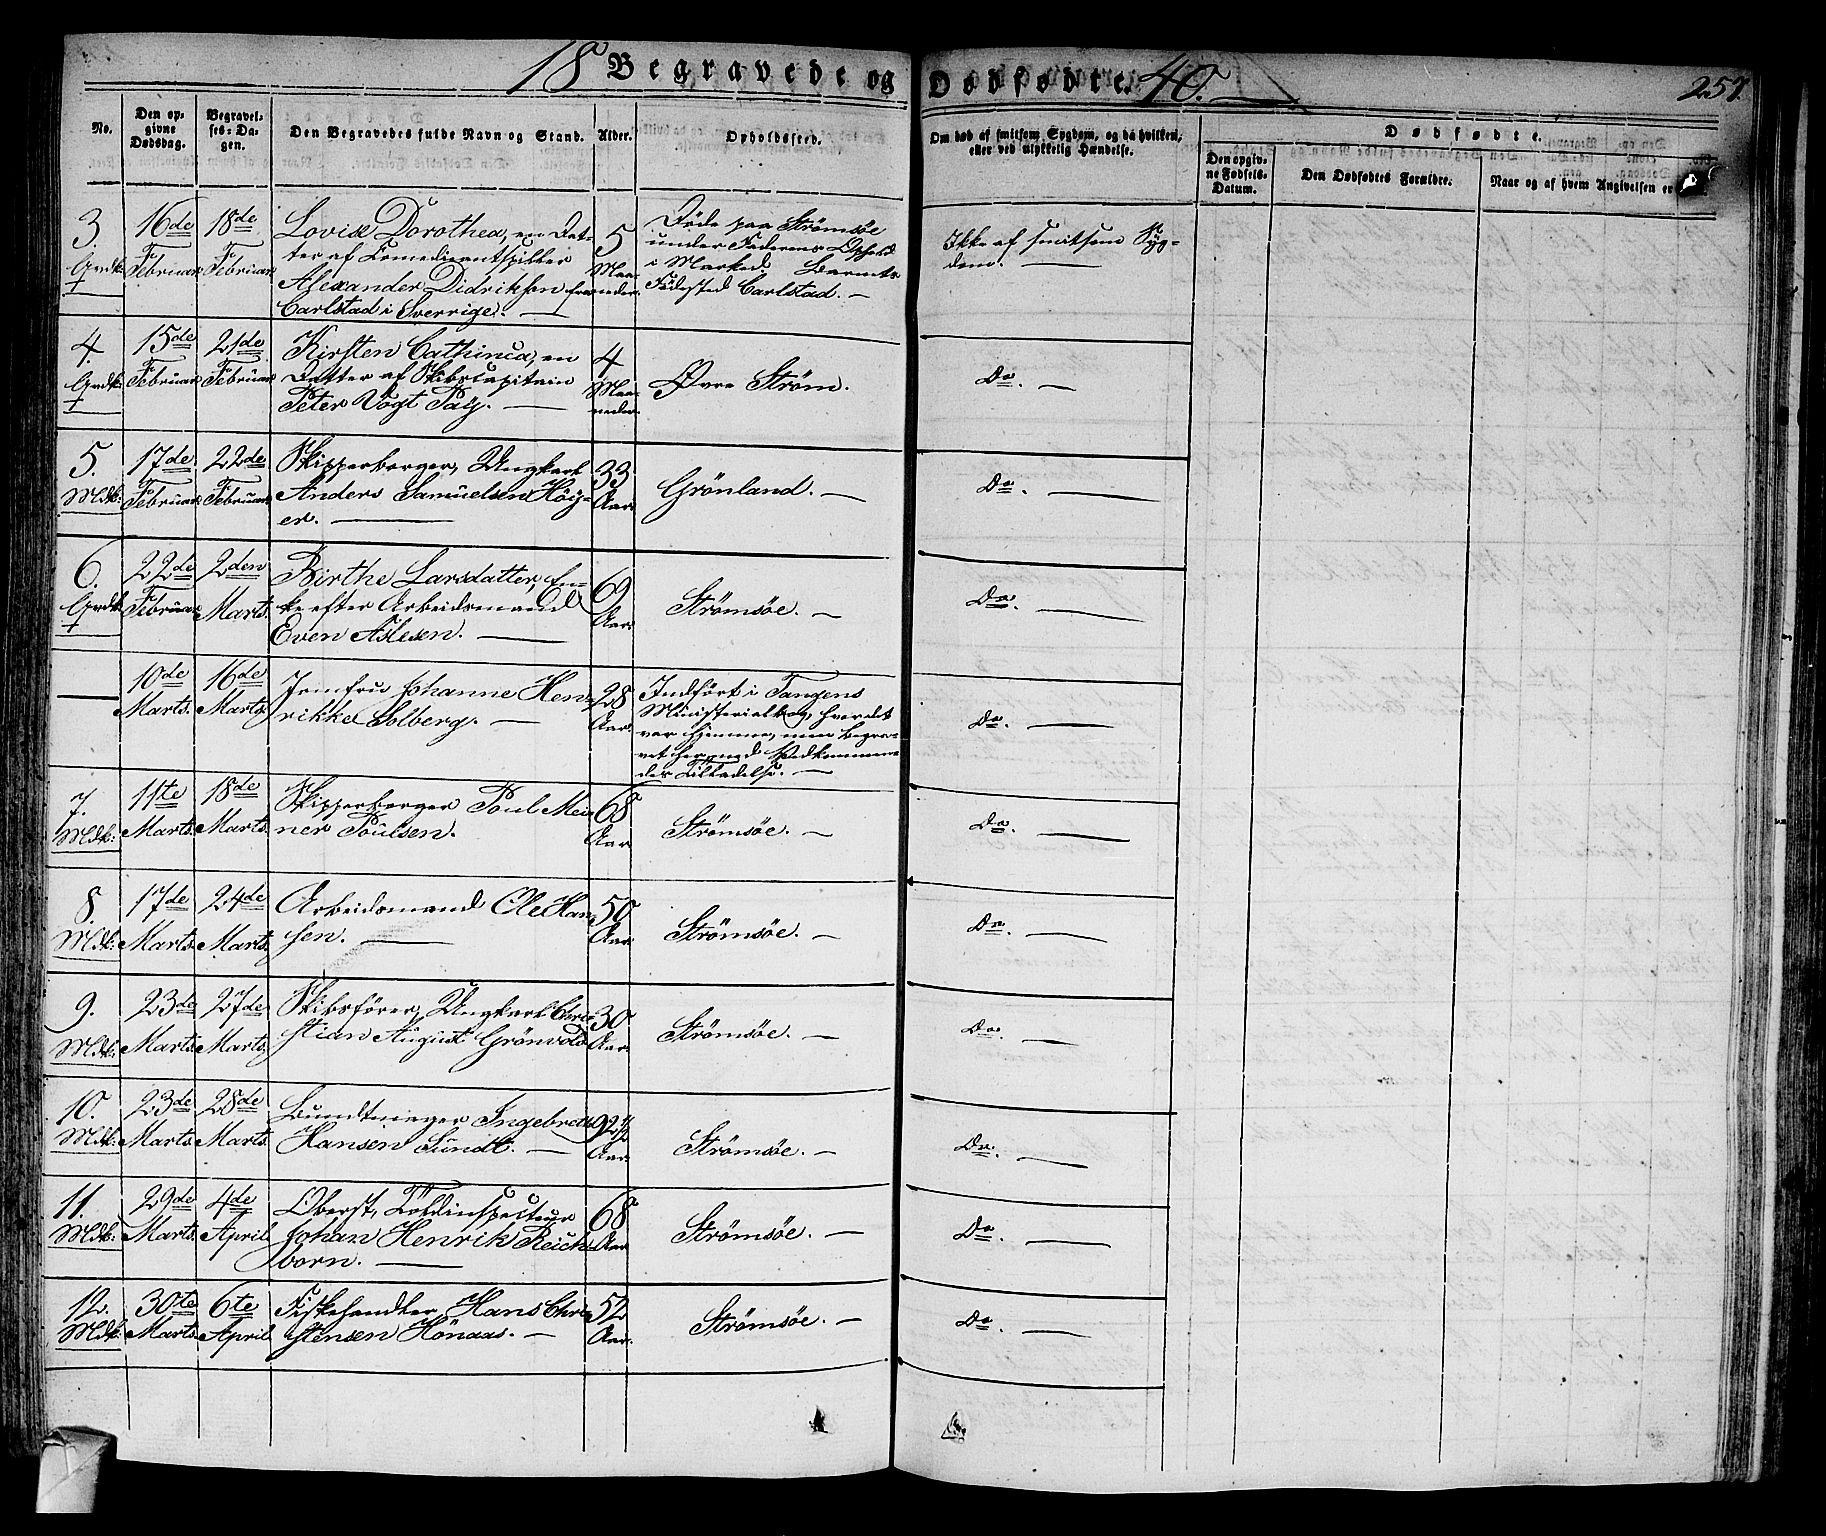 18 Begravede og Dødfødte. 40. 257.
No.
Den opgivne Dødsdag.
Begravelses-Dagen.
Den Begravedes fulde Navn og Stand.
Alder.
Opholdssted.
Om død af smitsom Sygdom, og da hvilken,
eller ved ulykkelig Hændelse.
Dødfødte.
Den opgivne Fødsels-Datum.
Den Dødfødtes Forældre.
Naar og af hvem Angivelsen er
3. 16de 18de Lovise Dorothea, en Dat- 5 Døde paa Strømsøe
Februar Februar ter af Comedieantspiller Maa- under Faderens Ophold Ikke af smitsom Syg-
Grdk: Alexander Didriksen fra neder. i Marked. Barnets dom. —
Carlstad i Sverrige. — Fødested Carlstad. —
4. 15de 21de Kirsten Cathinca, en 4
Grdk: Februar Februar Datter af Skibscapitain Maa- Øvre Strøm. Do. —
Peter Vogt Paij. — neder.
5. 17de 22de Skipperborger, Ungkarl 33
Mdk: Februar Februar Anders Samuelsen Höy- Aar. Grønland. — Do. —
er. —
6. 22de 2den Birthe Larsdatter, En- 69
Grdk: Februar Marts. ke efter Arbeidsmand Aar. Strømsøe. — Do. —
Even Aslesen. —
— 10de 16de Jomfru Johanne Hen- 28 Indført i Tangens
Marts. Marts. rikke Solberg. — Aar. Ministerialbog, hvor det Do. —
var hjemme, men begra-
vet her med Vedkommen-
des Tilladelse. —
7. 11te 18de Skipperborger Poul Mei- 68
Mdk: Marts. Marts. ner Poulsen. Aar Strømsøe. — Do. —
8. 17de 24de Arbeidsmand Ole Han- 50
Mdk: Marts. Marts. sen. — Aar. Strømsøe. — Do. —
9. 23de 27de Skibsfører, Ungkarl Chri- 30
Mdk: Marts. Marts. stian August Grönvold Aar. Strømsøe. — Do. —
10. 23de 28de Bundtmager Ingebret 92½
Mdk: Marts. Marts. Hansen Sundt. — Aar. Strømsøe. — Do. —
11. 29de 4de Oberst, Toldinspecteur 68
Mdk: Marts. April Johan Henrik Reich- Aar Strømsøe. — Do. —
born. —
12. 30te 6te Fiskehandler Hans Chri- 52
Mdk. Marts. April stensen Hönaas. — Aar. Strømsøe. — Do. —